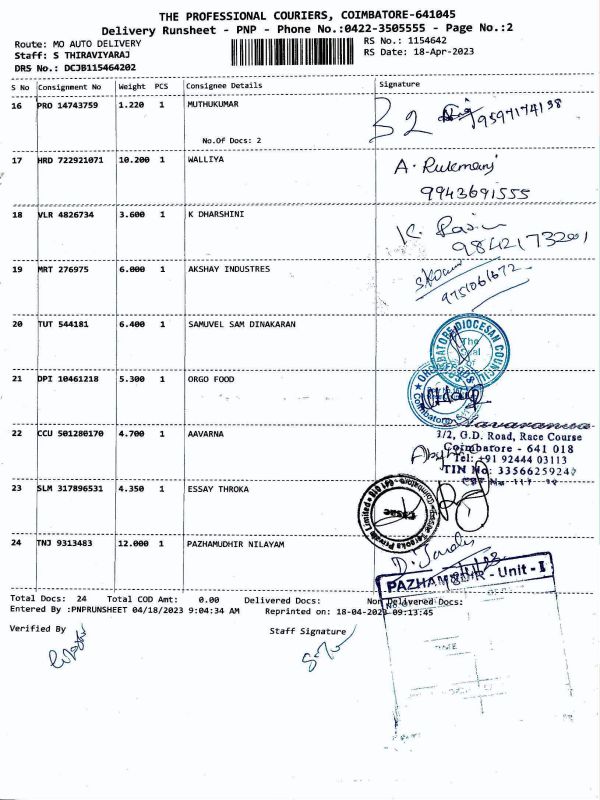 THE PROFESSIONAL COURIERS, COIMBATORE-641045
Delivery Runsheet - PNP - Phone No.:0422-3505555 - Page No.:2
Route: MO AUTO DELIVERY RS No.: 1154642
Staff: S THIRAVIYARAJ RS Date: 18-Apr-2023
DRS No.: DCJB115464202
S No Consignment No Weight PCS Consignee Details Signature
16 PRO 14743759 1.220 1 MUTHUKUMAR
9597174198
No.Of Docs: 2
17 HRD 722921071 10.200 1 WALLIYA A. Rukmani
9943691555
18 VLR 4826734 3.600 1 K DHARSHINI K.
9842173201
19 MRT 276975 6.000 1 AKSHAY INDUSTRES
9751061672
20 TUT 544181 6.400 1 SAMUVEL SAM DINAKARAN
DIOCESAN COUNCIL
21 DPI 10461218 5.300 1 ORGO FOOD
22 CCU 501280170 4.700 1 AAVARNA
3/2, G.D. Road, Race Course
Coimbatore - 641 018
Tel: +91 92444 03113
TIN No: 3356625924
23 SLM 317896531 4.350 1 ESSAY THROKA
24 TNJ 9313483 12.000 1 PAZHAMUDHIR NILAYAM
PAZHAMUDIR - Unit - I
Total Docs: 24 Total COD Amt: 0.00 Delivered Docs: Non Delivered Docs:
Entered By :PNPRUNSHEET 04/18/2023 9:04:34 AM Reprinted on: 18-04-2023 09:13:45
Verified By Staff Signature